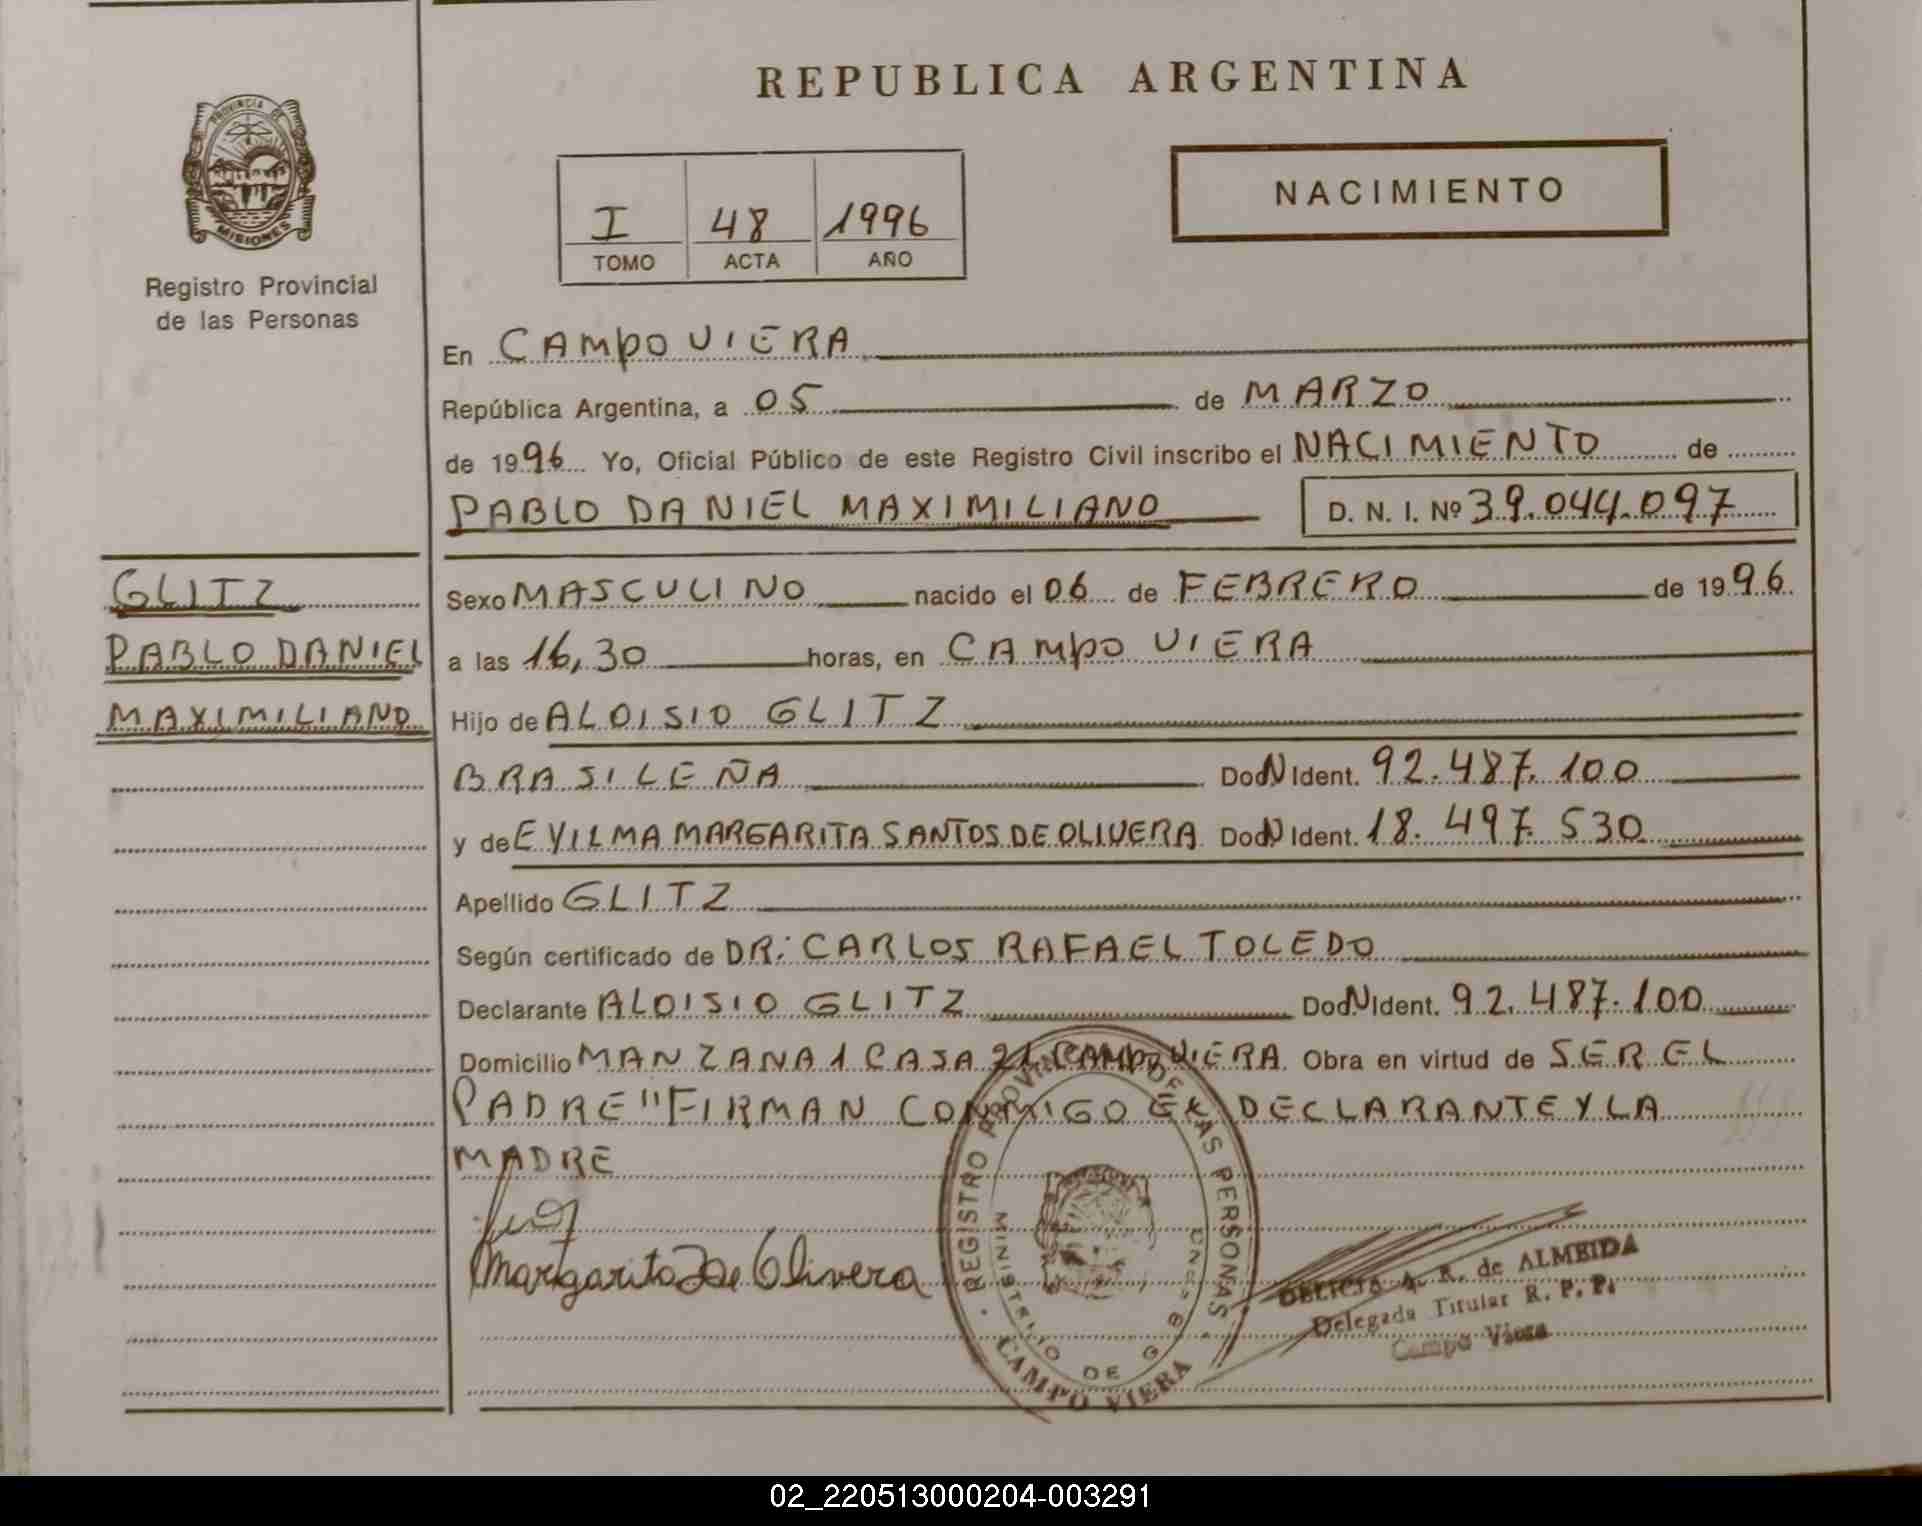 REPUBLICA ARGENTINA
PROVINCIA DE
MISIONES
Registro Provincial
de las Personas
I 48 1996
TOMO ACTA AÑO
NACIMIENTO
En CAMPO VIERA
República Argentina, a 05 de MARZO
de 1996 Yo, Oficial Público de este Registro Civil inscribo el NACIMIENTO de
PABLO DANIEL MAXIMILIANO D. N. I. Nº 39.044.097
GLITZ
PABLO DANIEL
MAXIMILIANO
Sexo MASCULINO nacido el 06 de FEBRERO de 1996
a las 16,30 horas, en CAMPO VIERA
Hijo de ALOISIO GLITZ
BRASILEÑA Doc. N Ident. 92.487.100
y de EVILMA MARGARITA SANTOS DE OLIVERA Doc. N Ident. 18.497.530
Apellido GLITZ
Según certificado de DR. CARLOS RAFAEL TOLEDO
Declarante ALOISIO GLITZ Doc. N Ident. 92.487.100
Domicilio MANZANA 1 CASA 21 CAMPO VIERA Obra en virtud de SER EL
PADRE "FIRMAN CONMIGO EL DECLARANTE Y LA
MADRE
Margarita De Olivera
REGISTRO PROVINCIAL DE LAS PERSONAS
MINISTERIO DE GOB
CAMPO VIERA
DELICIA A. R. de ALMEIDA
Delegada Titular R. P. P.
Campo Viera
02_220513000204-003291